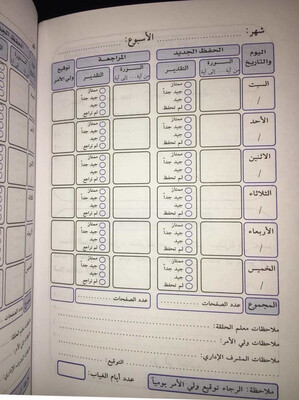 شهر: .......... الأسبوع: ..........
اليوم والتاريخ
الحفظ الجديد
المراجعة
توقيع ولي الأمر
السورة
من آية .... إلى آية
التقدير
السورة
من آية .... إلى آية
التقدير
السبت
/
ممتاز
جيد جداً
جيد
لم تحفظ
ممتاز
جيد جداً
جيد
لم تراجع
الأحد
/
ممتاز
جيد جداً
جيد
لم تحفظ
ممتاز
جيد جداً
جيد
لم تراجع
الاثنين
/
ممتاز
جيد جداً
جيد
لم تحفظ
ممتاز
جيد جداً
جيد
لم تراجع
الثلاثاء
/
ممتاز
جيد جداً
جيد
لم تحفظ
ممتاز
جيد جداً
جيد
لم تراجع
الأربعاء
/
ممتاز
جيد جداً
جيد
لم تحفظ
ممتاز
جيد جداً
جيد
لم تراجع
الخميس
/
ممتاز
جيد جداً
جيد
لم تحفظ
ممتاز
جيد جداً
جيد
لم تراجع
المجموع
عدد الصفحات :
عدد الصفحات :
ملاحظات معلم الحلقة:
ملاحظات ولي الأمر:
ملاحظات المشرف الإداري:
التوقيع:
ملاحظة: الرجاء توقيع ولي الأمر يومياً
عدد أيام الغياب: